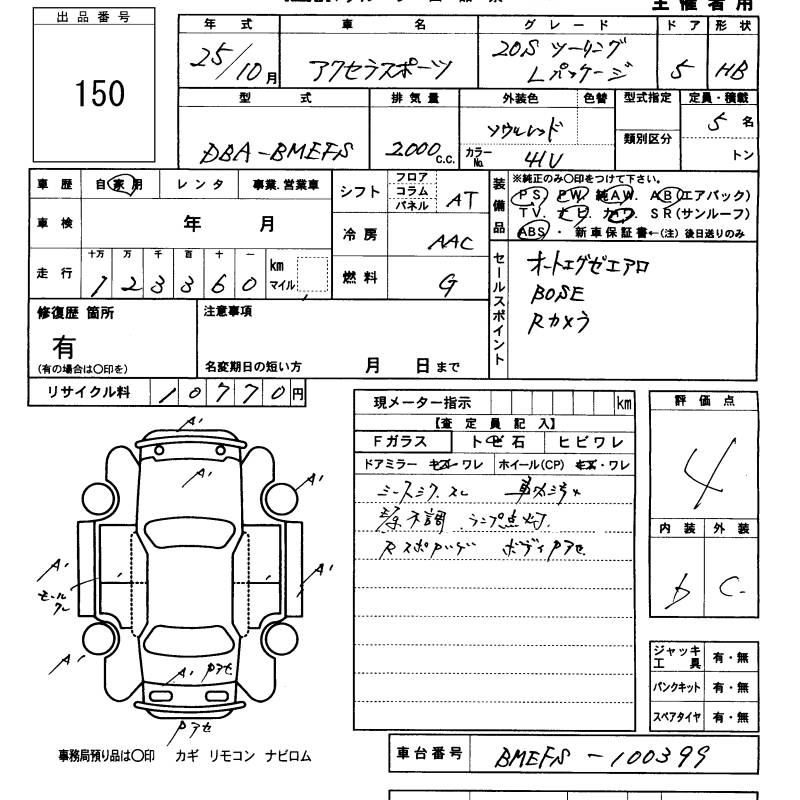 主催者用
出品番号
150
年式 車名 グレード ドア 形状
25/10月 アクセラスポーツ 20S ツーリング Lパッケージ 5 HB
型式 排気量 外装色 色替 型式指定 定員・積載
DBA-BMEFS 2000c.c. ソウルレッド カラーNo. 41V 類別区分 5名
トン
車歴 自家用 レンタ 事業.営業車
シフト フロア コラム パネル AT
装備品 ※純正のみ〇印をつけて下さい。
PS. PW. 純AW. AB(エアバック)
TV. ナビ. カワ. SR(サンルーフ)
ABS・ 新車保証書←(注) 後日送りのみ
車検 年 月
冷房 AAC
走行 十万 万 千 百 十 一 km マイル
1 2 3 3 6 0
燃料 G
セールスポイント オートエグゼエアロ
BOSE
Rカメラ
修復歴 箇所 注意事項
有
(有の場合は〇印を) 名変期日の短い方 月 日まで
リサイクル料 10770円
現メーター指示 km
【査定員記入】
Fガラス トビ石 ヒビワレ
ドアミラー キズ・ワレ ホイール(CP) キズ・ワレ
シートシワ.スレ
不調 ランプ点灯.
ボディ
評価点
4
内装 外装
b C-
A' A' A' A' A' A' A' A'
モール
ジャッキ工具 有・無
パンクキット 有・無
スペアタイヤ 有・無
事務局預り品は〇印 カギ リモコン ナビロム
車台番号 BMEFS-100399